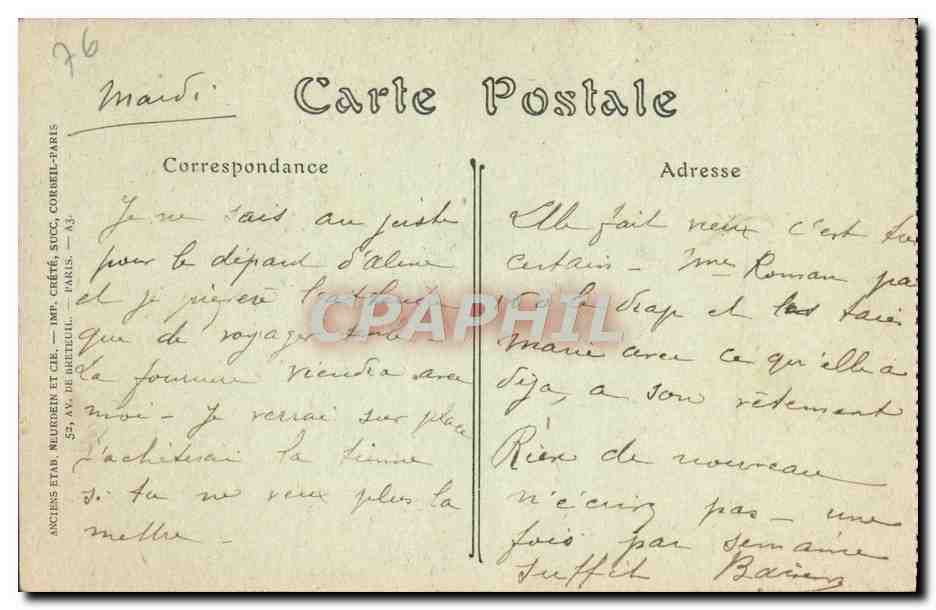 76
Mardi
Carte Postale
Correspondance
Je ne sais au juste
pour le départ d'Aline
et je préfère l'attendre
que de voyager
La fourrure viendra avec
moi - Je verrai sur place
j'achèterai la tienne
si tu ne veux plus la
mettre -
Adresse
Elle fait vieux c'est
certain - Mme Roman
le drap et les taies
Marie avec ce qu'elle a
déjà, a son vêtement
Rien de nouveau
n'écrivez pas - une
fois par semaine
suffit Baisers
ANCIENS ETAB. NEURDEIN ET CIE. — IMP. CRÉTÉ, SUCC, CORBEIL-PARIS
52, AV. DE BRETEUIL. — PARIS. — A3.
CPAPHIL